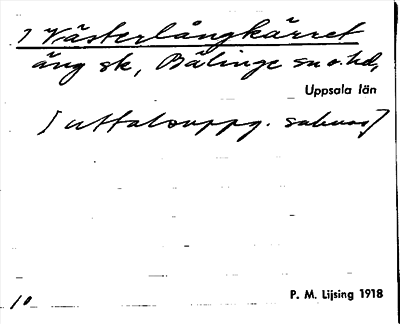 1 Västerlångkärret
äng sk, Bälinge sn o. hd,
Uppsala län
[uttalsuppg. saknas]
10
P. M. Lijsing 1918